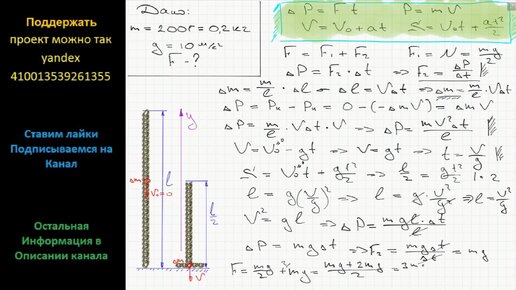 Поддержать
проект можно так
yandex
410013539261355
Ставим лайки
Подписываемся на
Канал
Остальная
Информация в
Описании канала
Дано:
m = 200г = 0,2кг
g = 10 м/с²
F - ?
ΔP = Ft P = mV
V = V₀ + at S = V₀t + at²/2
F = F₁ + F₂ F₁ = N = mg/2
ΔP = F₂·Δt ⇒ F₂ = ΔP/Δt
Δm = m/l · Δl Δl = V·Δt ⇒ Δm = m/l · VΔt
ΔP = Pк - Pн = 0 - (-ΔmV) = ΔmV
ΔP = m/l · VΔt · V ⇒ ΔP = mV²Δt/l
V = V₀ - gt ⇒ V = gt ⇒ t = V/g
S = V₀t + gt²/2 ⇒ l/2 = gt²/2 | · 2
l = g(V/g)² ⇒ l = g · V²/g² ⇒ l = V²/g
V² = gl ⇒ ΔP = mglΔt/l
ΔP = mgΔt ⇒ F₂ = mgΔt/Δt = mg
F = mg/2 + mg = (mg + 2mg)/2 = 3m
y
l
Δm
V₀=0
l/2
Δm
V